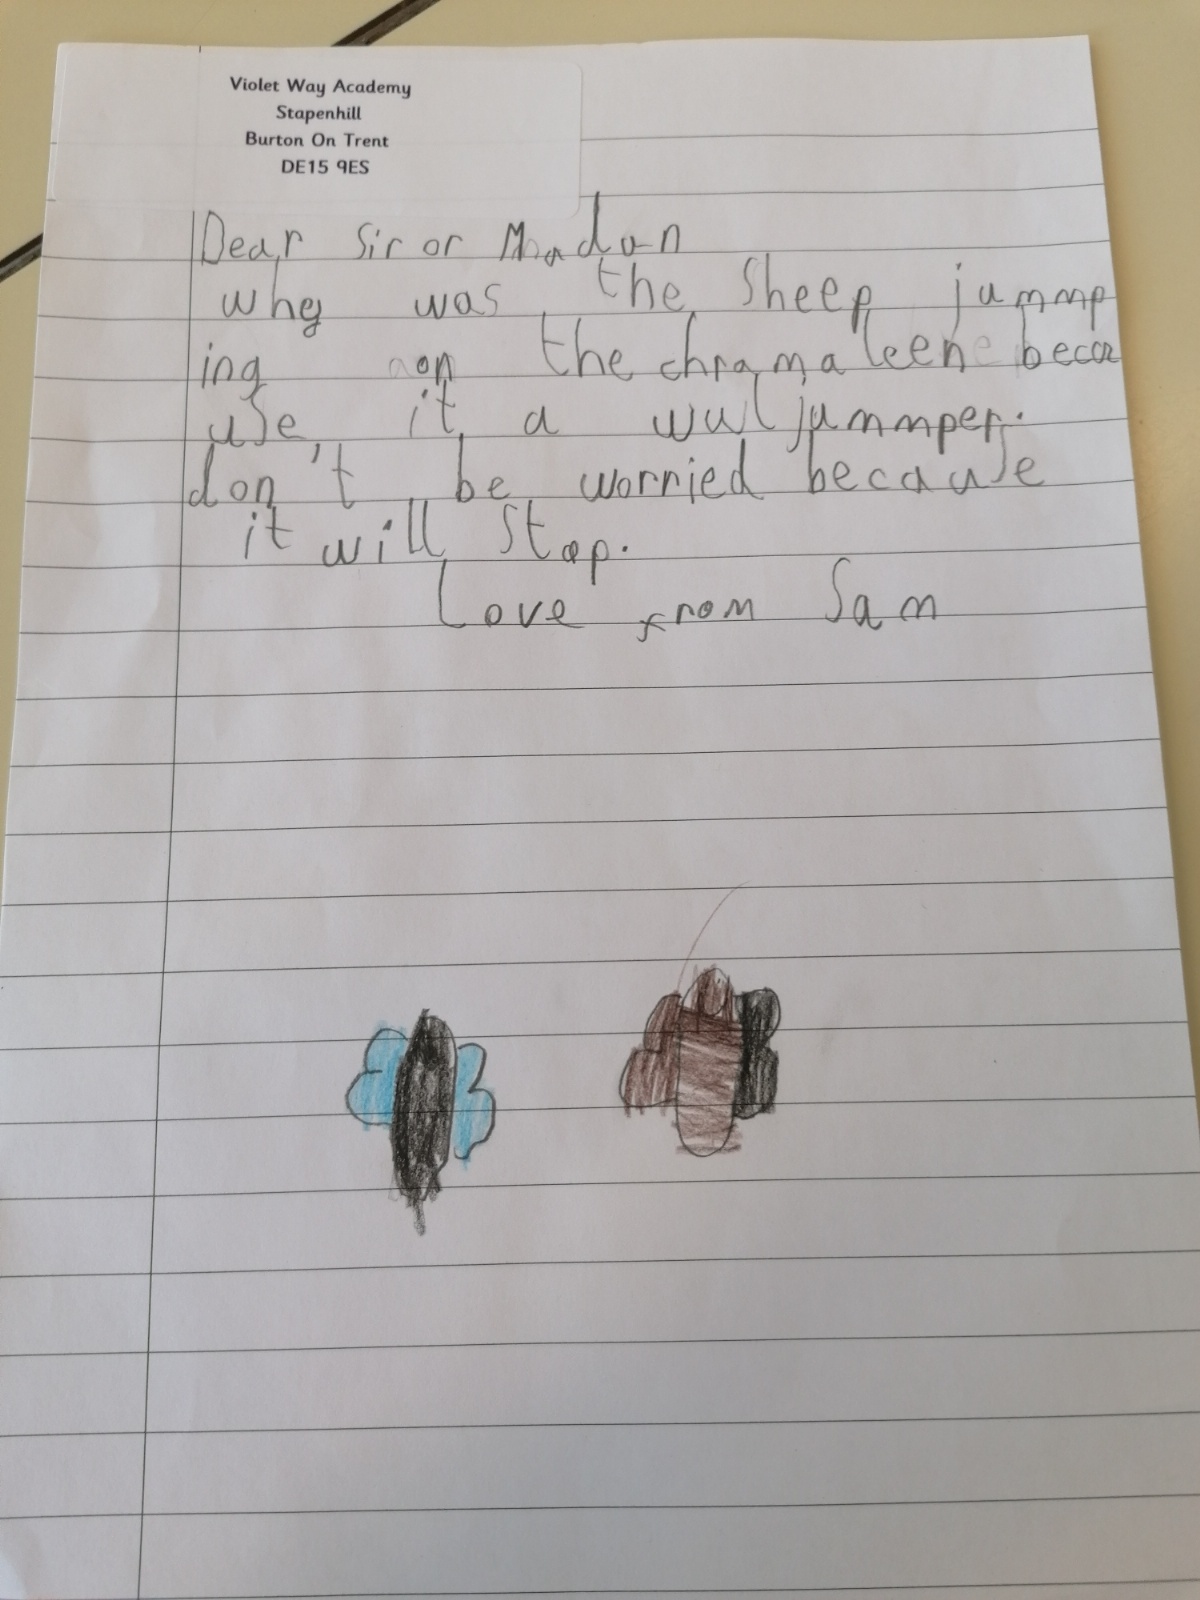 Violet Way Academy
Stapenhill
Burton On Trent
DE15 9ES
Dear Sir or Madan
whey was the Sheep jummp
ing on the chramaleene beca
use it a wul jummper.
don't be worried because
it will Stop.
Love from Sam